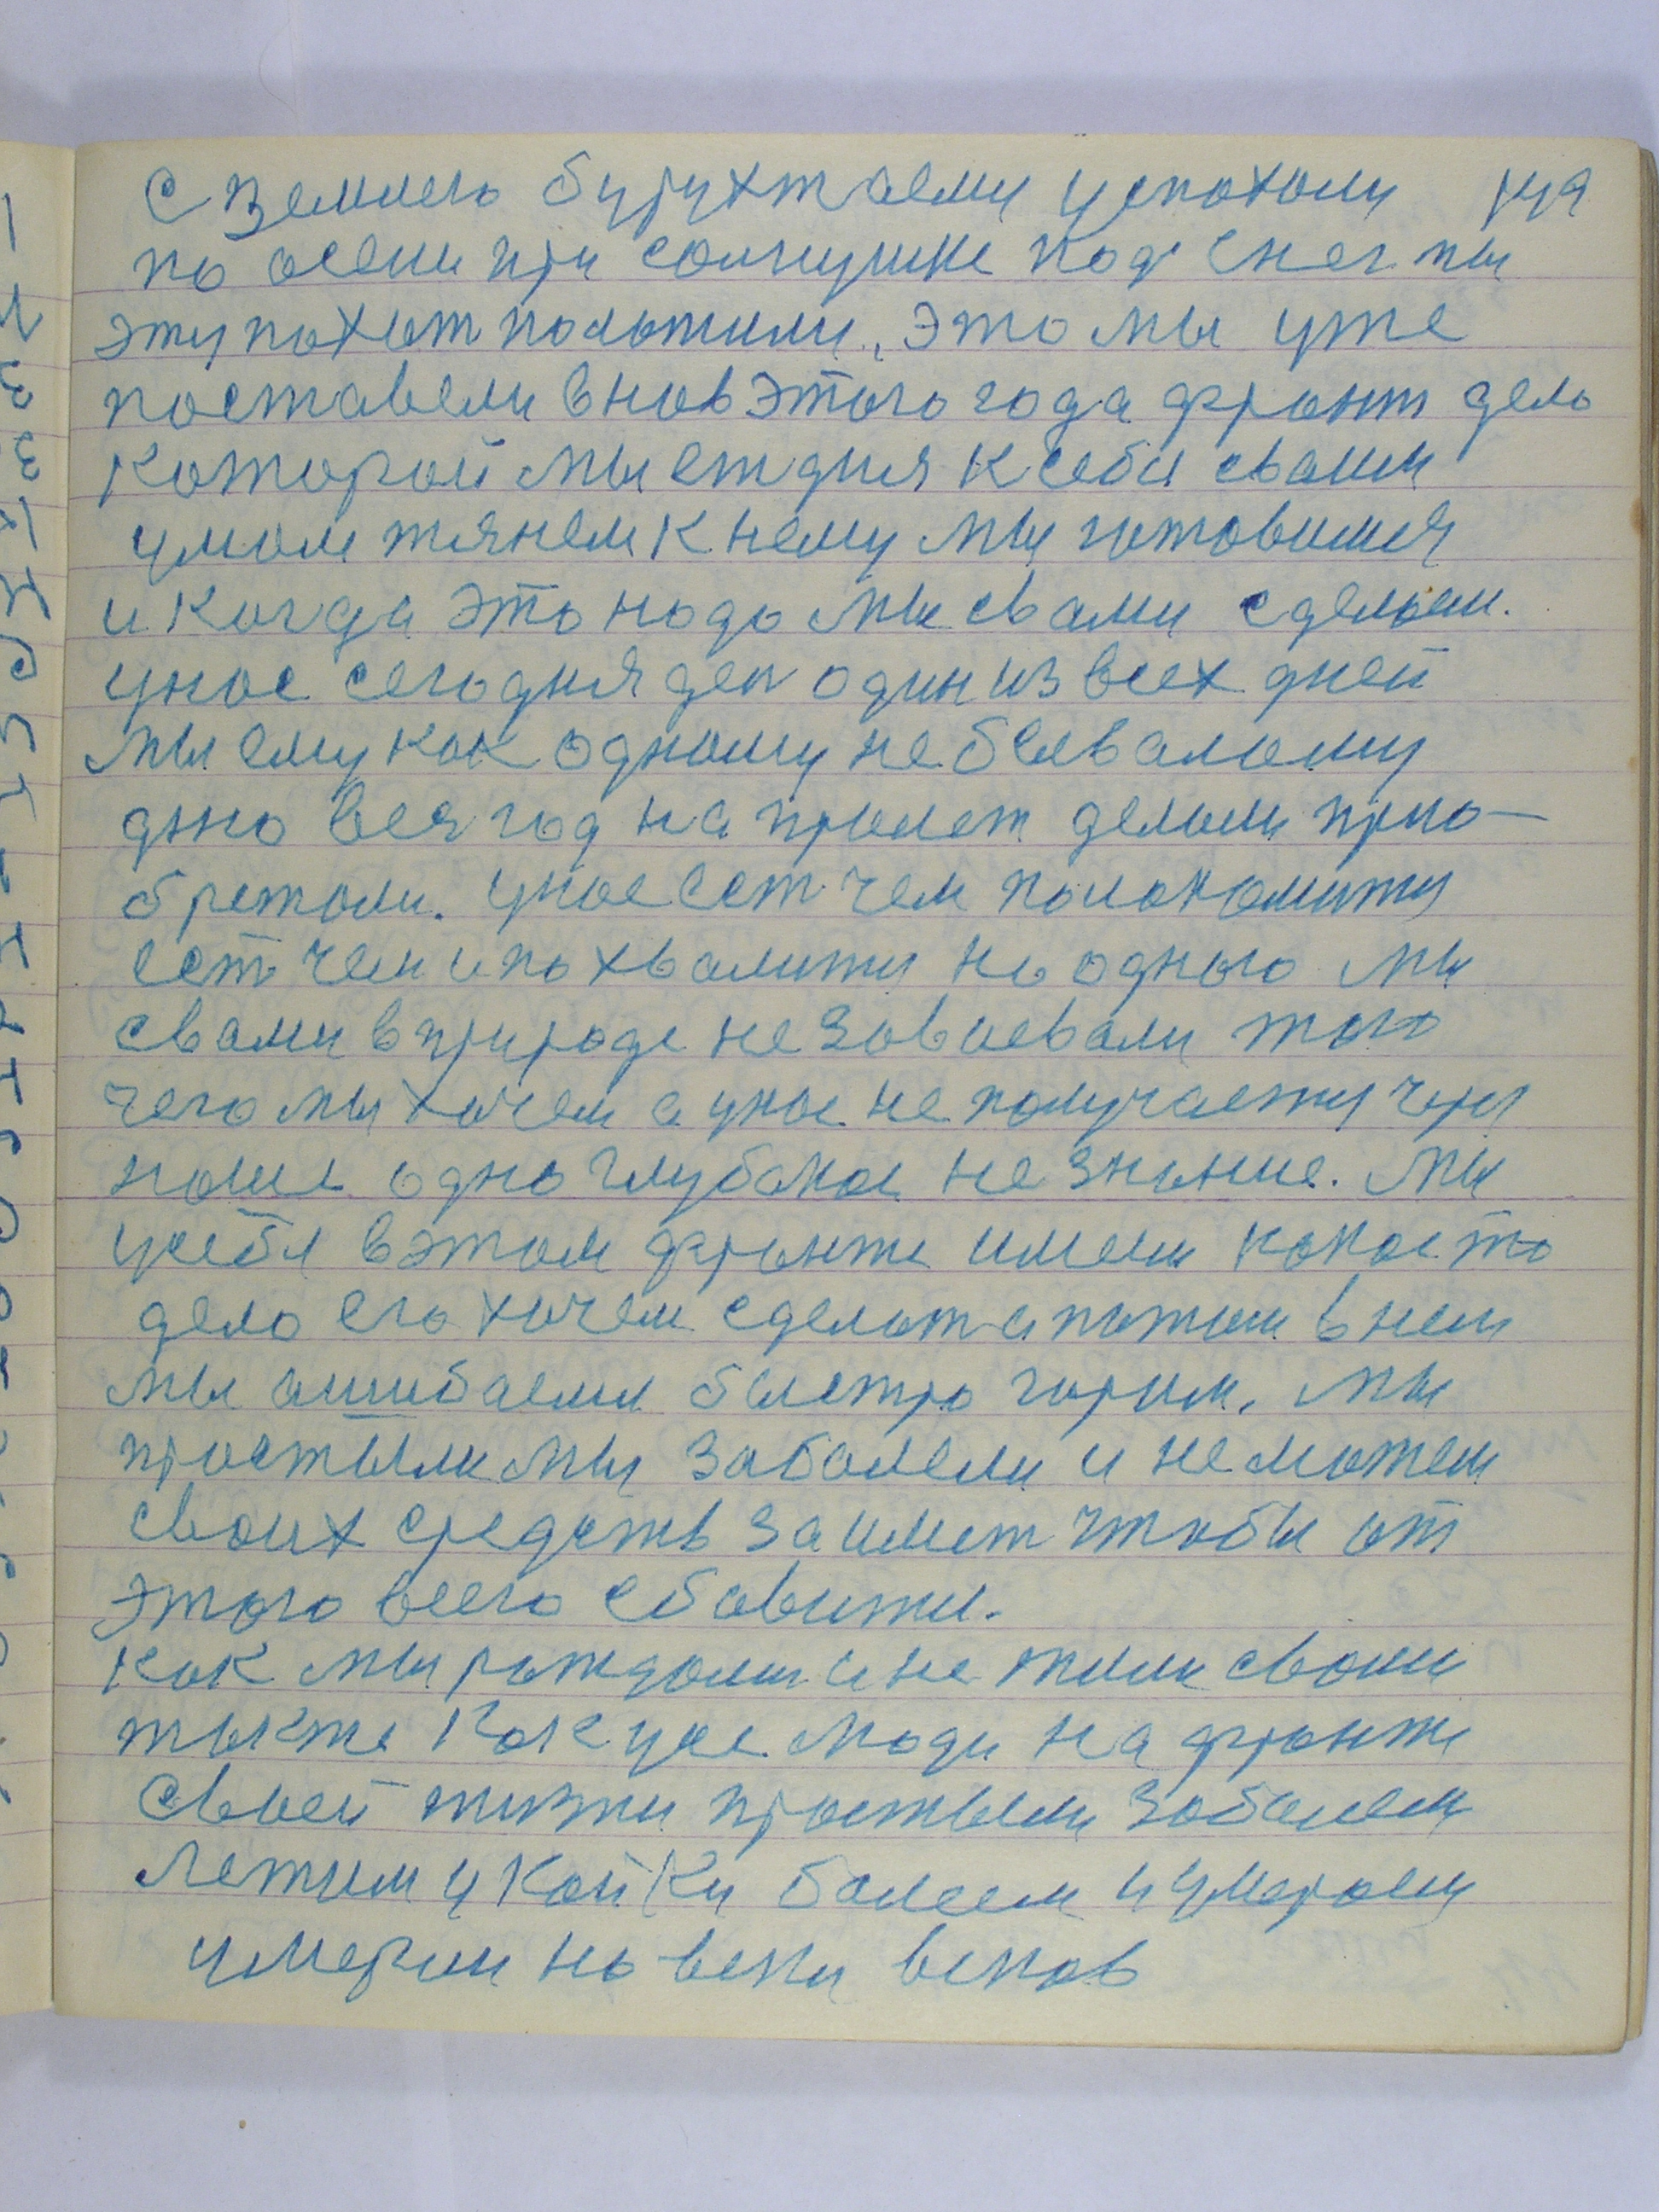 с землею бурухтаеми успахали
по осени при солнушке под снег мы
эту пахат положили, это мы уже
поставели внов этого года фронт дело
которой мы ст дня к себи сваим
умом тянем к нему мы готовимся
и когда это надо мы свами сделаем.
унас сегодня ден один из всех дней
мы ему как одному небывалому
дню вся год на пролет делали прио-
бретали. унас ест чем полакомится
ест чем ипохвалится но одного мы
свами вприроде не завоевали того
чего мы хочем а унас не получается чрез
наше одно глубокое не знание. мы
усебя вэтом фронте имеем какое то
дело его хочем сделат а потом внем
мы ашибаемся быстро горим. мы
простыли мы заболели и неможем
своих средств заимет чтобы от
этого всего сбавится.
как мы рождалис и не жили своим
также как усе люди на фронте
своей жизни простыли заболели
лежим у койки болеем и умераем
умерли на веки веков